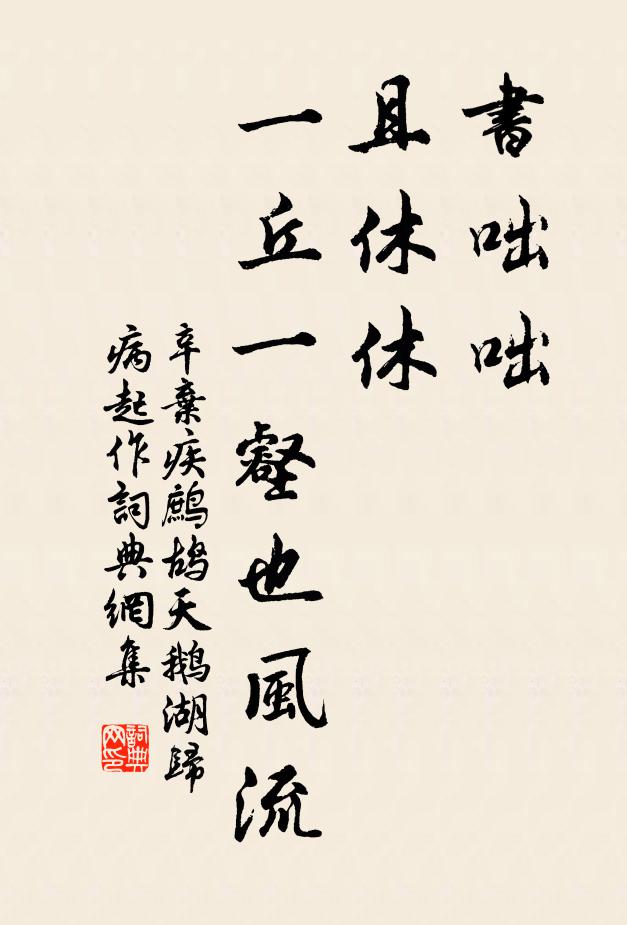 書咄咄
且休休
一丘一壑也風流
辛棄疾鷓鴣天鵝湖歸
病起作詞典網集
詞典
网印